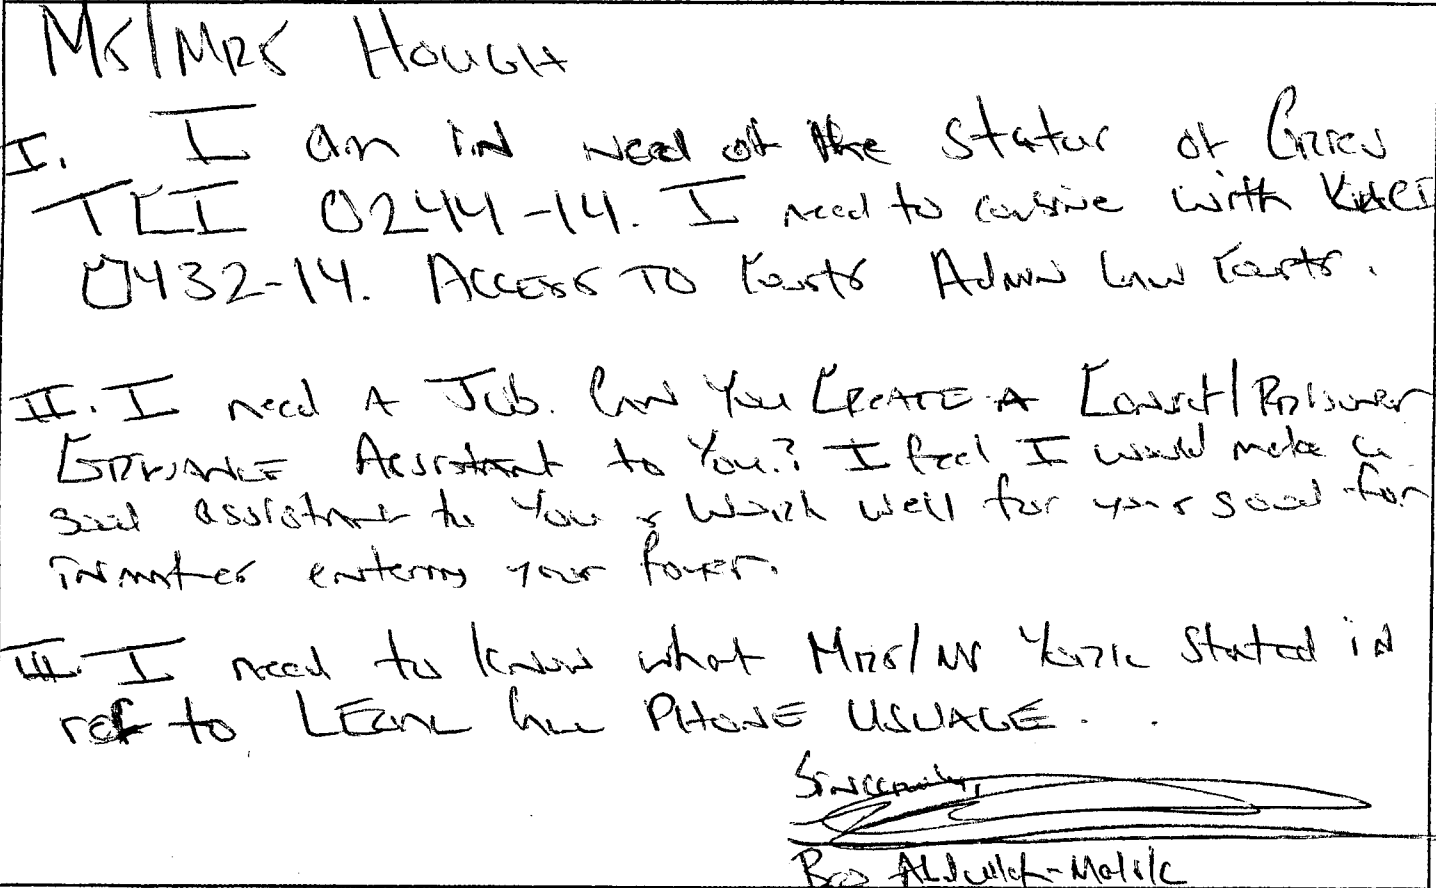 Ms/Mrs Hough
I. I am in need of the status of Griev
TCI 0244-14. I need to combine with KNCI
0432-14. Access to Courts Admin Law Courts.
II. I need A Job. Can You CREATE A Convict/Prisoner
GRIEVANCE Assistant to You? I feel I would make a
good assistant to You & Work well for your good for
inmates entering your
III. I need to know what Mrs/Ms York stated in
ref to LEGAL Call PHONE USUAGE. . .
Sincerely,
Bro Abdullah-Malik